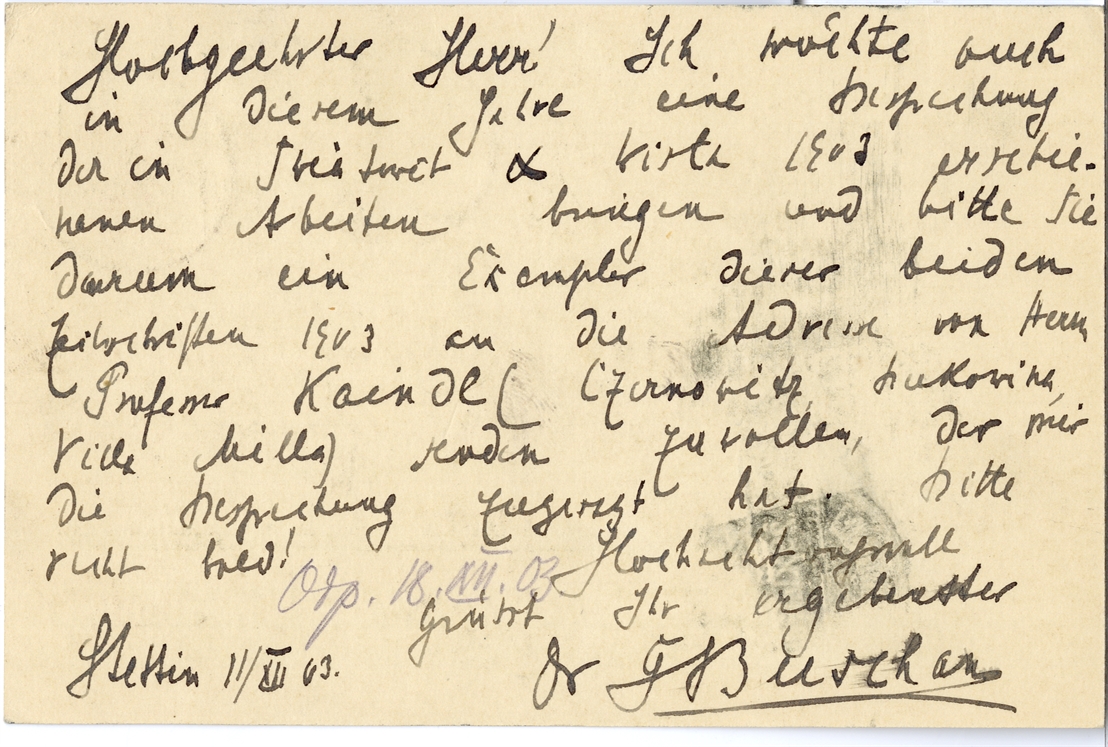 Hochgeehrter Herr! Ich möchte auch
in diesem Jahre eine Besprechung
der in Światowit & Wisła 1903 erschie-
nenen Arbeiten bringen und bitte Sie
darum ein Exemplar dieser beiden
Zeitschriften 1903 an die Adresse von Herrn
Professor Kaindl (Czernowitz, Bukowina,
Villa Milla) senden zu wollen, der mir
die Besprechung zugesagt hat. Bitte
recht bald! Hochachtungsvoll
Odp. 18.XII.03
grüsst Ihr ergebenster
Stettin 11/XII 03. Dr G Buschan